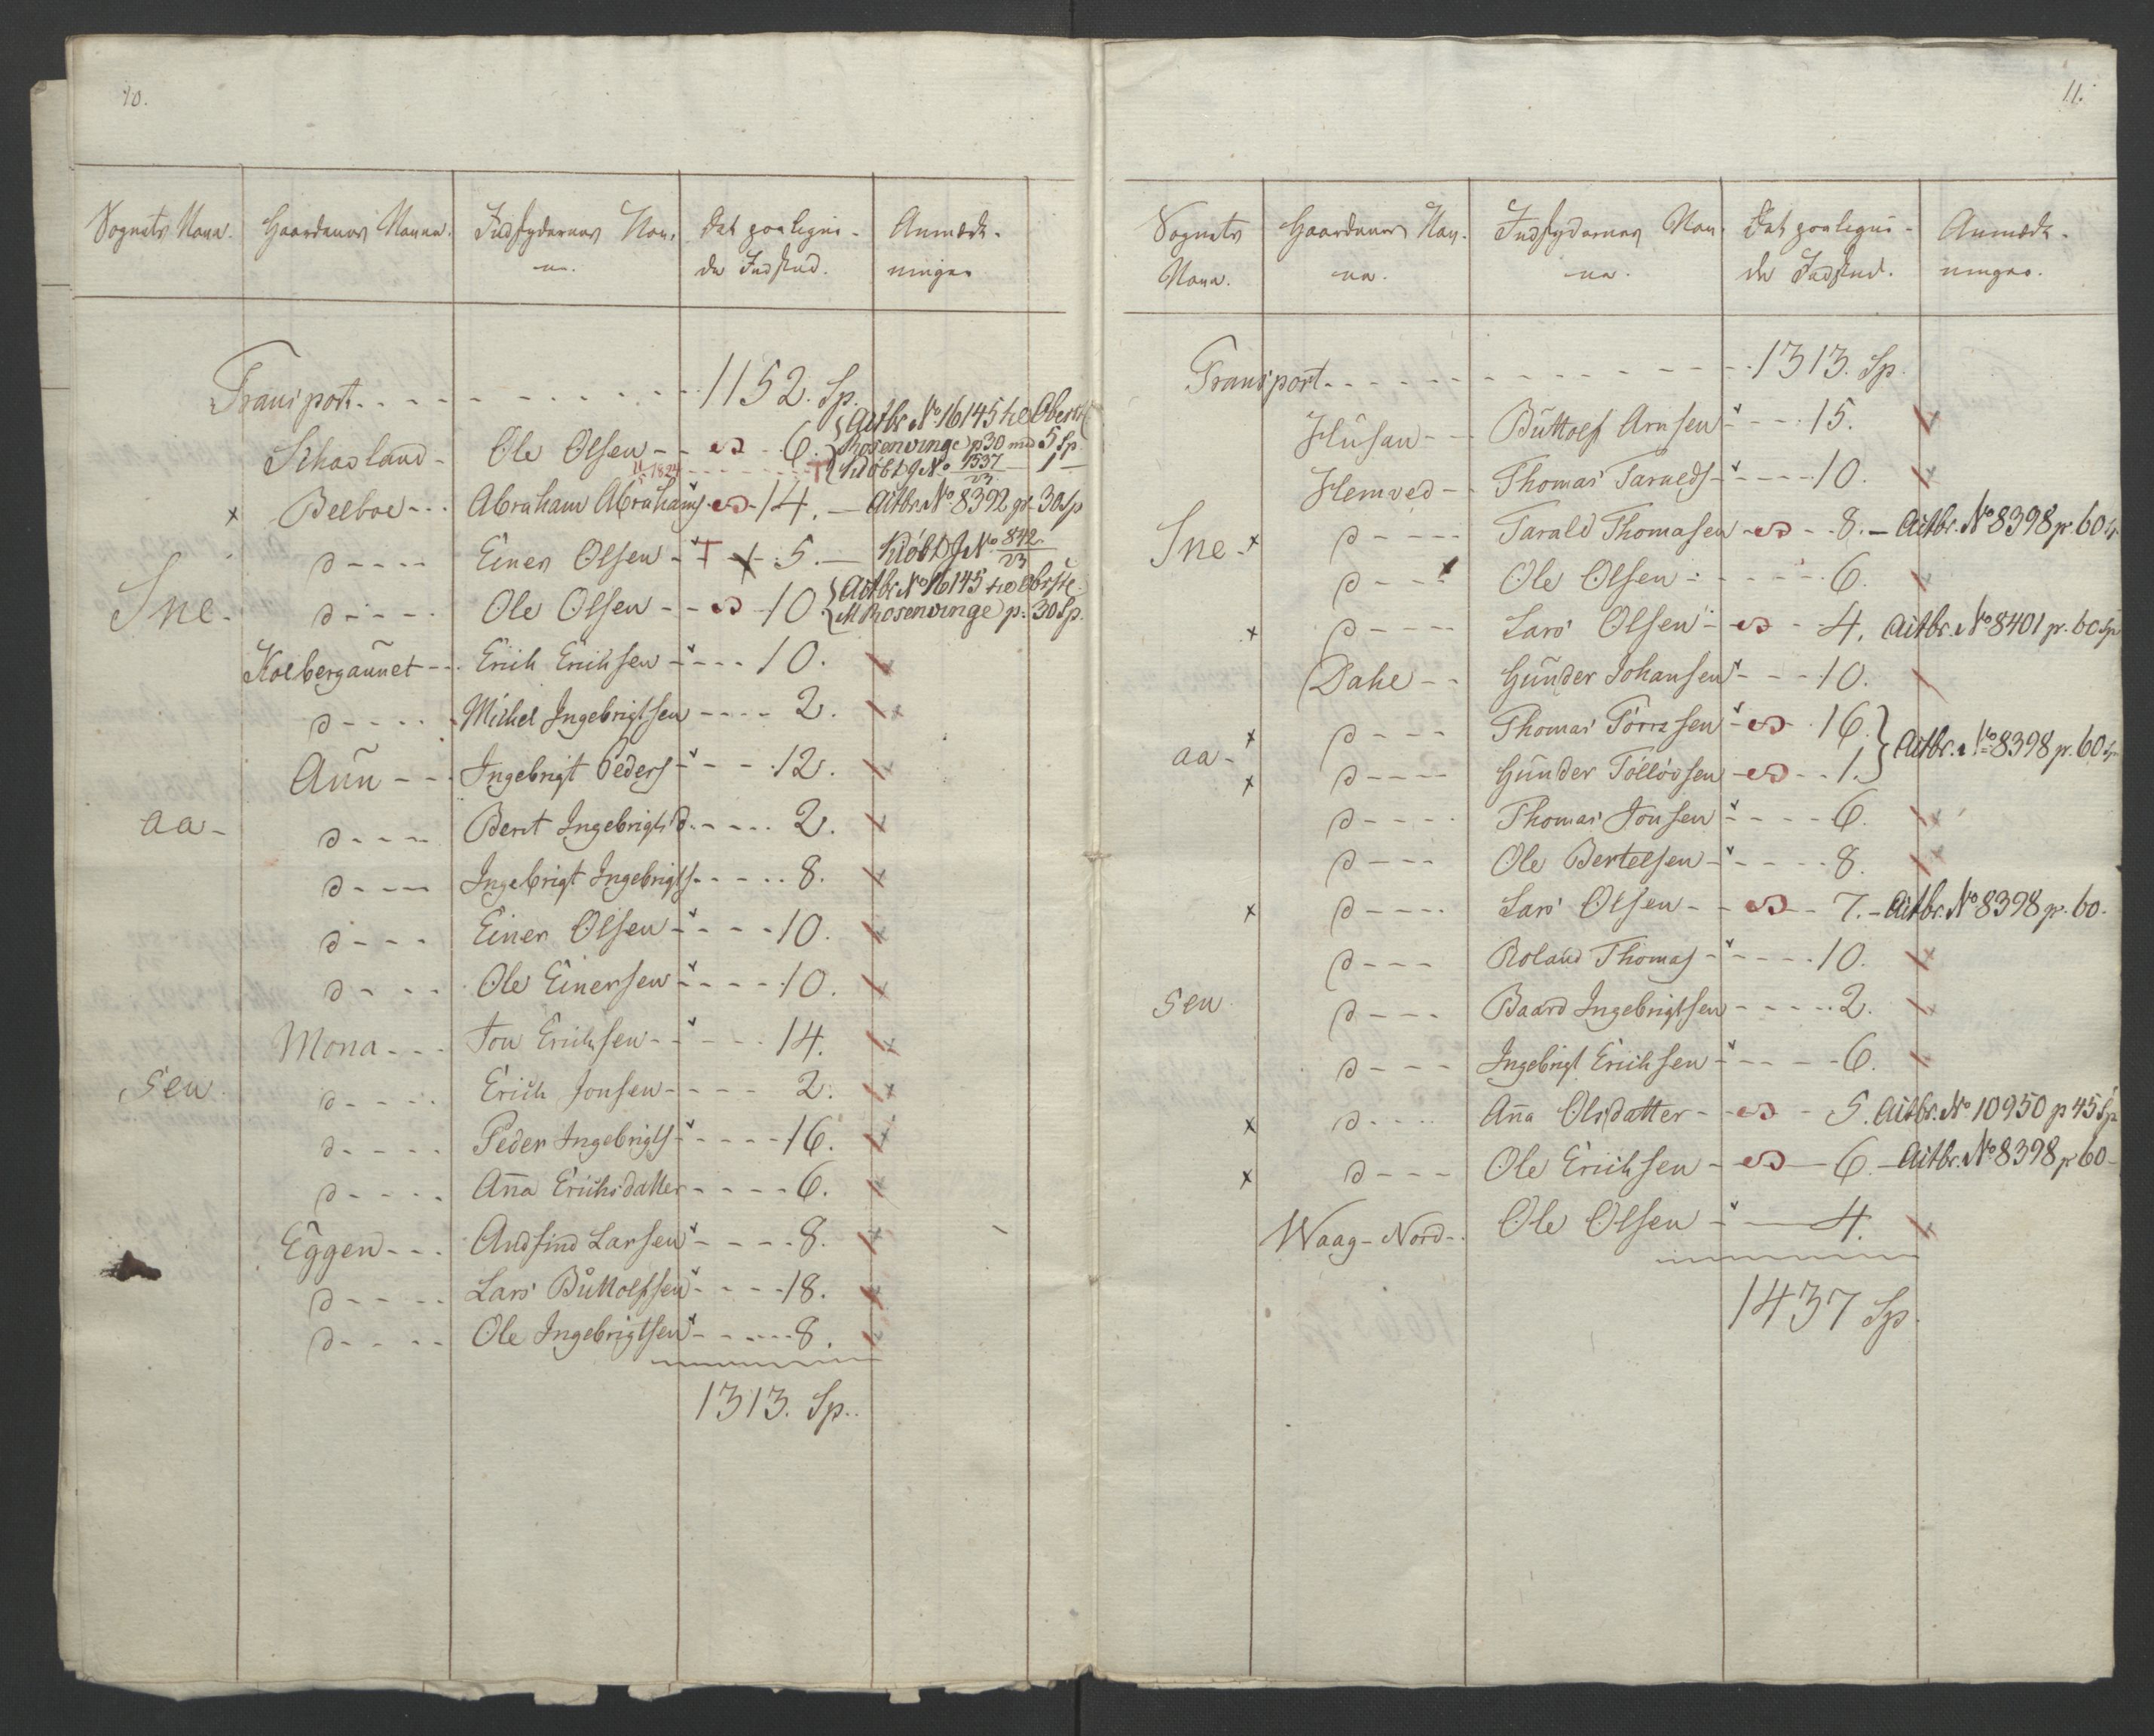 10.
Sognets Navn. Gaardenes Navne. Indskydernes Nav- Det paaligne- Anmærk-
ne. de Indskud. ninger
Transport - - - - 1152. Sp.
Skaoland - Ole Olsen - - 6. Actbr. No. 16145 til Oberstl
Rosenvinge p. 30 med 5 Sp.
1824 T Kiöbt J No 1537/23 - 1 -
x Belboe - - - Abraham Abrahams - 14. - Actbr. No 8392 p. 30 Sp
d - - - - Einer Olsen - T x 5. - Kiöbt J No. 842/23
Sne - d - - - - Ole Olsen - - 10. Actbr. No 16145 til Obrstl.
M Rosenvinge p. 30 Sp.
Kolbergaunet - - Erich Erichsen - - - - 10.
d - - - - Michel Ingebrigtsen - - - - 2.
Aun - - - Ingebrigt Peders - - - 12.
aa - d - - - - Berit Ingebrigtsd. - - - - 2.
d - - - Ingebrigt Ingebrigts. - - - - 8.
d - - - Einer Olsen - - - - 10.
d - - - - Ole Einersen - - - - 10.
Mona - - - Jon Erichsen - - - - 14.
sen d - - - - Erich Jonsen - - - - 2.
d - - - - Peder Ingebrigts - - - - 16.
d - - - - Anna Erichsdatter - - - - 6.
Eggen - - - Audfind Larsen - - - - 8.
d - - - - Lars Buttolfsen - - - - 18.
d - - - - Ole Ingebrigtsen - - - - 8.
1313. Sp.
11.
Sognets Gaardenes Nav- Indskydernes Nav- Det paaligne- Anmærk-
Navn. ne. ne. de Indskud. ninger.
Transport - - - - 1313. Sp.
Husan - - Buttolf Arnsen - - - 15.
Hemved - - Thomas Taralds - - - - 10.
Sne - x d - - - - Tarald Thomasen - - - 8. - Actbr. No 8398 p. 60 Sp
d - - - x Ole Olsen - - - - 6.
x d - - - - Lars Olsen - - - 4. Actbr. No 8401 p. 60 Sp
Dahl - - Gunder Johansen - - - 10.
aa - x d - - - Thomas Törrissen - - 16. } Actbr. No 8398 p. 60 Sp
x d - - - - Gunder Töllövsen - - - 1.
d - - - - Thomas Jonsen - - - - 6.
d - - - Ole Bertelsen - - - - 8.
x d - - - - Lars Olsen - - - 7. - Actbr. No 8398 p. 60.
d - - - Roland Thomas - - - - 10.
sen d - - - Baard Ingebrigtsen - - - - 2.
d - - - Ingebrigt Erichsen - - - - 6.
x d - - - - Anna Olsdatter - - - 5. Actbr. No 10950 p 45 Sp
x d - - - Ole Erichsen - - 6. - Actbr. No 8398 p 60 -
Waag - Nord - Ole Olsen - - 4.
1437 Sp.